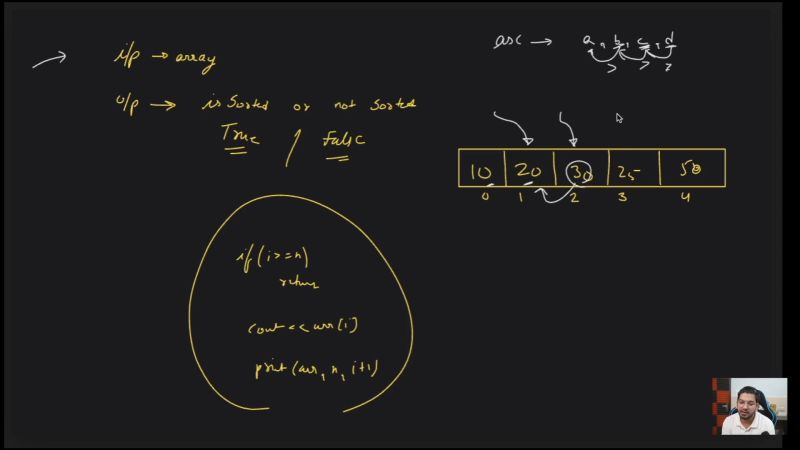 i/p → array
o/p → is Sorted or not Sorted
True / False
asc → a, b, c, d
> > >
10 20 30 25 50
0 1 2 3 4
if (i >= n)
return
cout << arr[i]
print (arr, n, i+1)